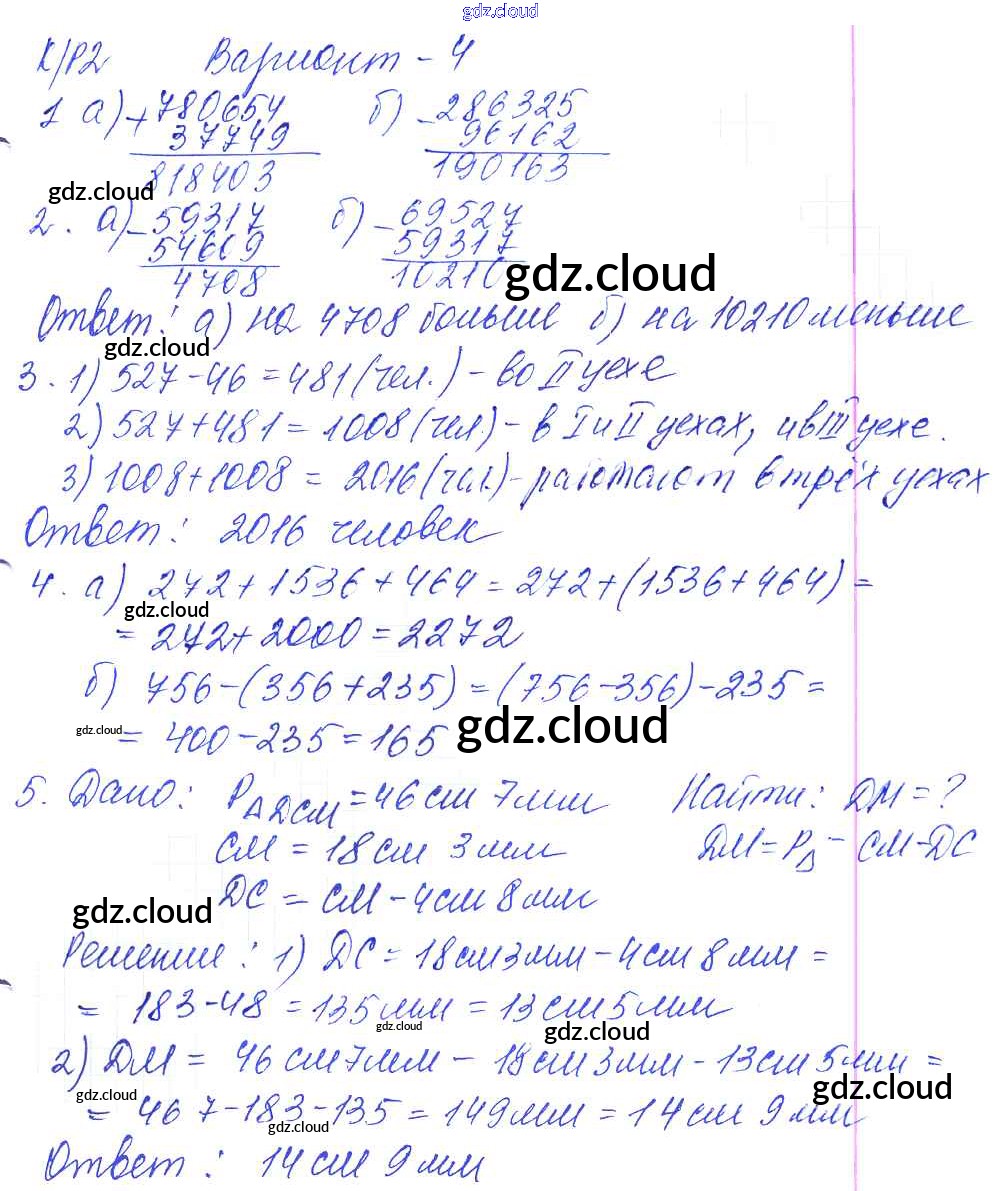 gdz.cloud
К/Р2 Вариант - 4
1 а) + 780654 б) - 286325
37749 96162
818403 190163
gdz.cloud
2. а) - 59317 б) - 69527
54609 59317
4708 10210
gdz.cloud
Ответ: а) на 4708 больше б) на 10210 меньше
gdz.cloud
3. 1) 527-46=481(чел.)-во II цехе
2) 527+481=1008(чел)-в I и II цехах, и в III цехе.
3) 1008+1008 = 2016(чел.)-работают в трёх цехах
Ответ: 2016 человек
4. а) 272+1536+464=272+(1536+464)=
gdz.cloud
=272+2000=2272
б) 756-(356+235)=(756-356)-235=
gdz.cloud = 400-235=165 gdz.cloud
5. Дано: PΔDCM=46см 7мм Найти: DM=?
CM=18см 3мм DM=PΔ-CM-DC
DC = CM-4см 8мм
gdz.cloud
Решение: 1) DC=18см3мм-4см 8мм=
= 183-48=135мм=13см5мм
gdz.cloud gdz.cloud
2) DM= 46см7мм-18см3мм-13см5мм=
gdz.cloud gdz.cloud
= 467-183-135=149мм=14см 9мм
gdz.cloud
Ответ: 14см 9мм